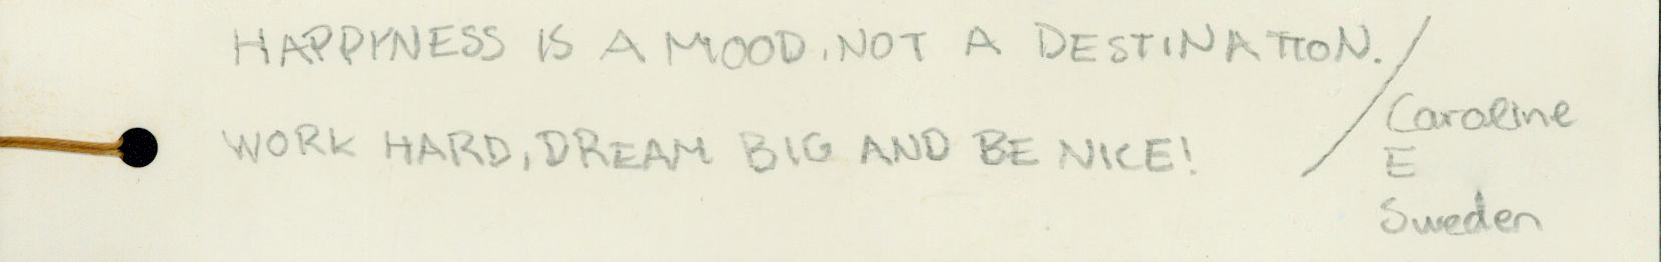 HAPPYNESS IS A MOOD, NOT A DESTINATION.
WORK HARD, DREAM BIG AND BE NICE!
/ Caroline
E
Sweden